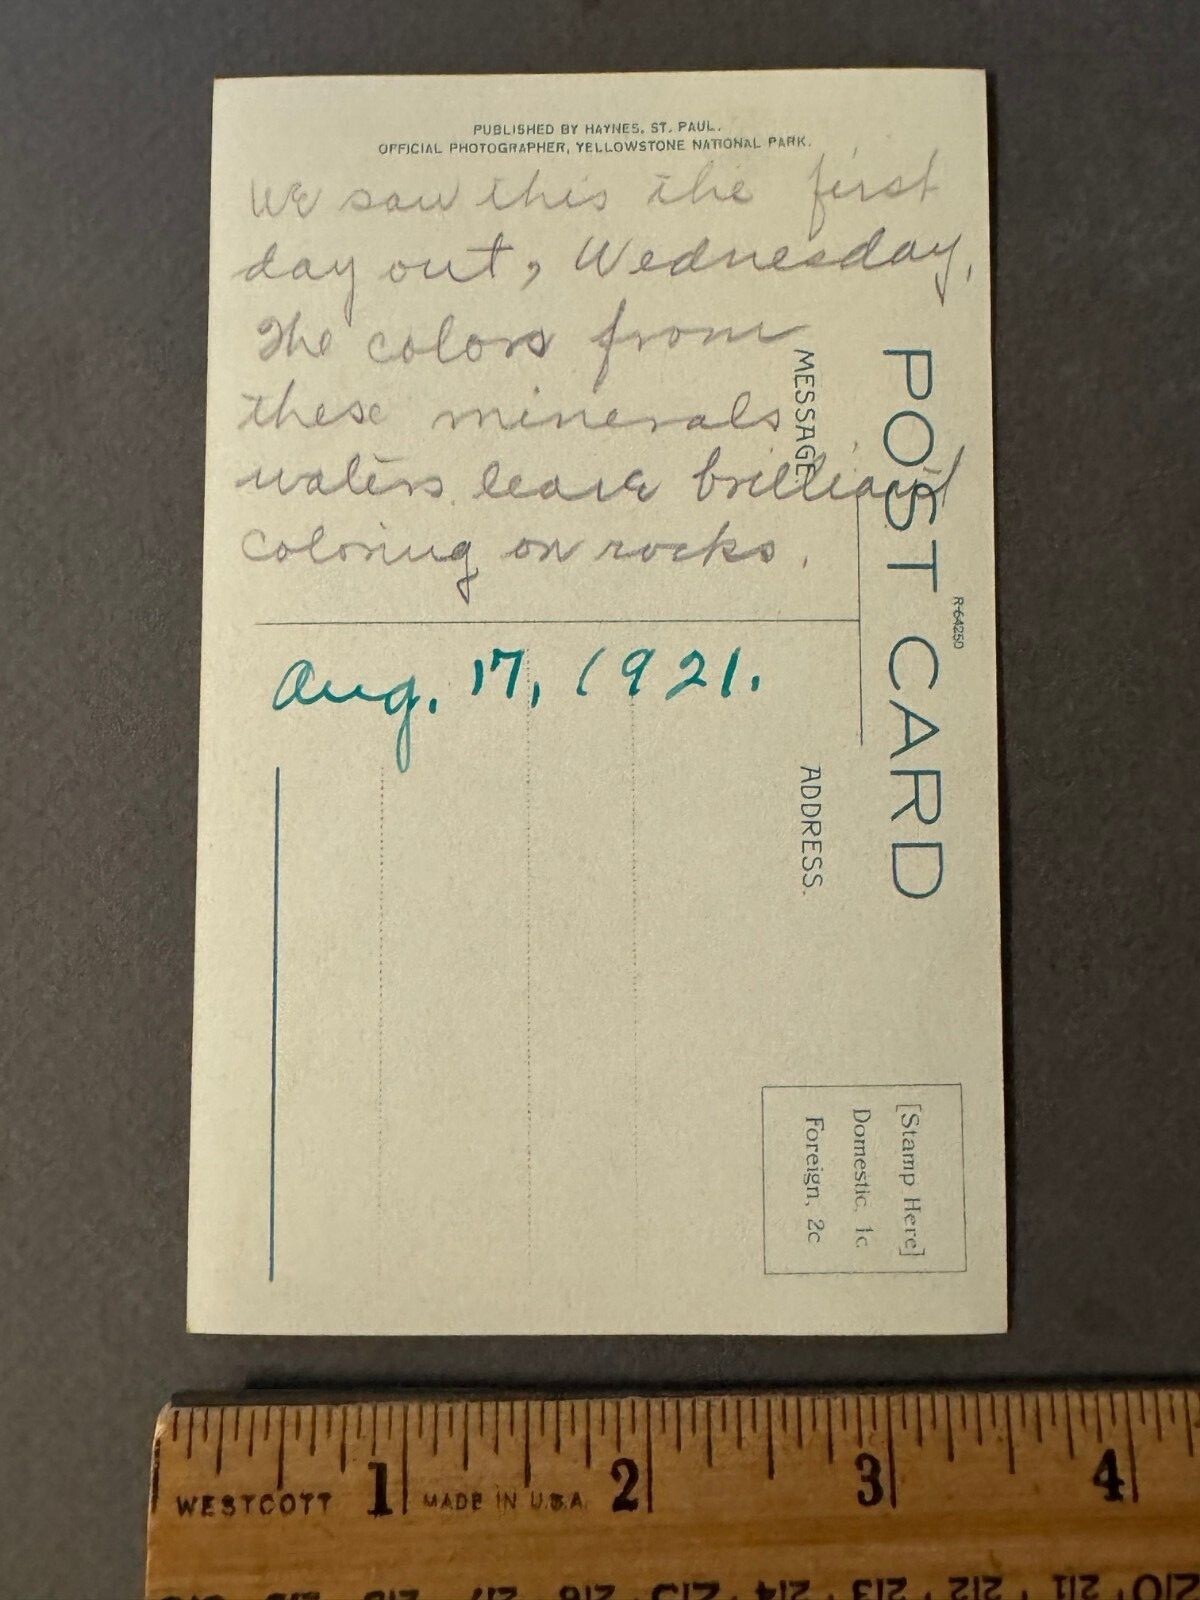 PUBLISHED BY HAYNES, ST. PAUL.
OFFICIAL PHOTOGRAPHER, YELLOWSTONE NATIONAL PARK.
We saw this the first
day out, Wednesday.
The colors from
these minerals
waters leave brilliant
coloring on rocks.
Aug. 17, 1921.
POST CARD
MESSAGE.
ADDRESS.
R-64250
[Stamp Here]
Domestic, 1c
Foreign, 2c
WESTCOTT 1 MADE IN U.S.A. 2 3 4